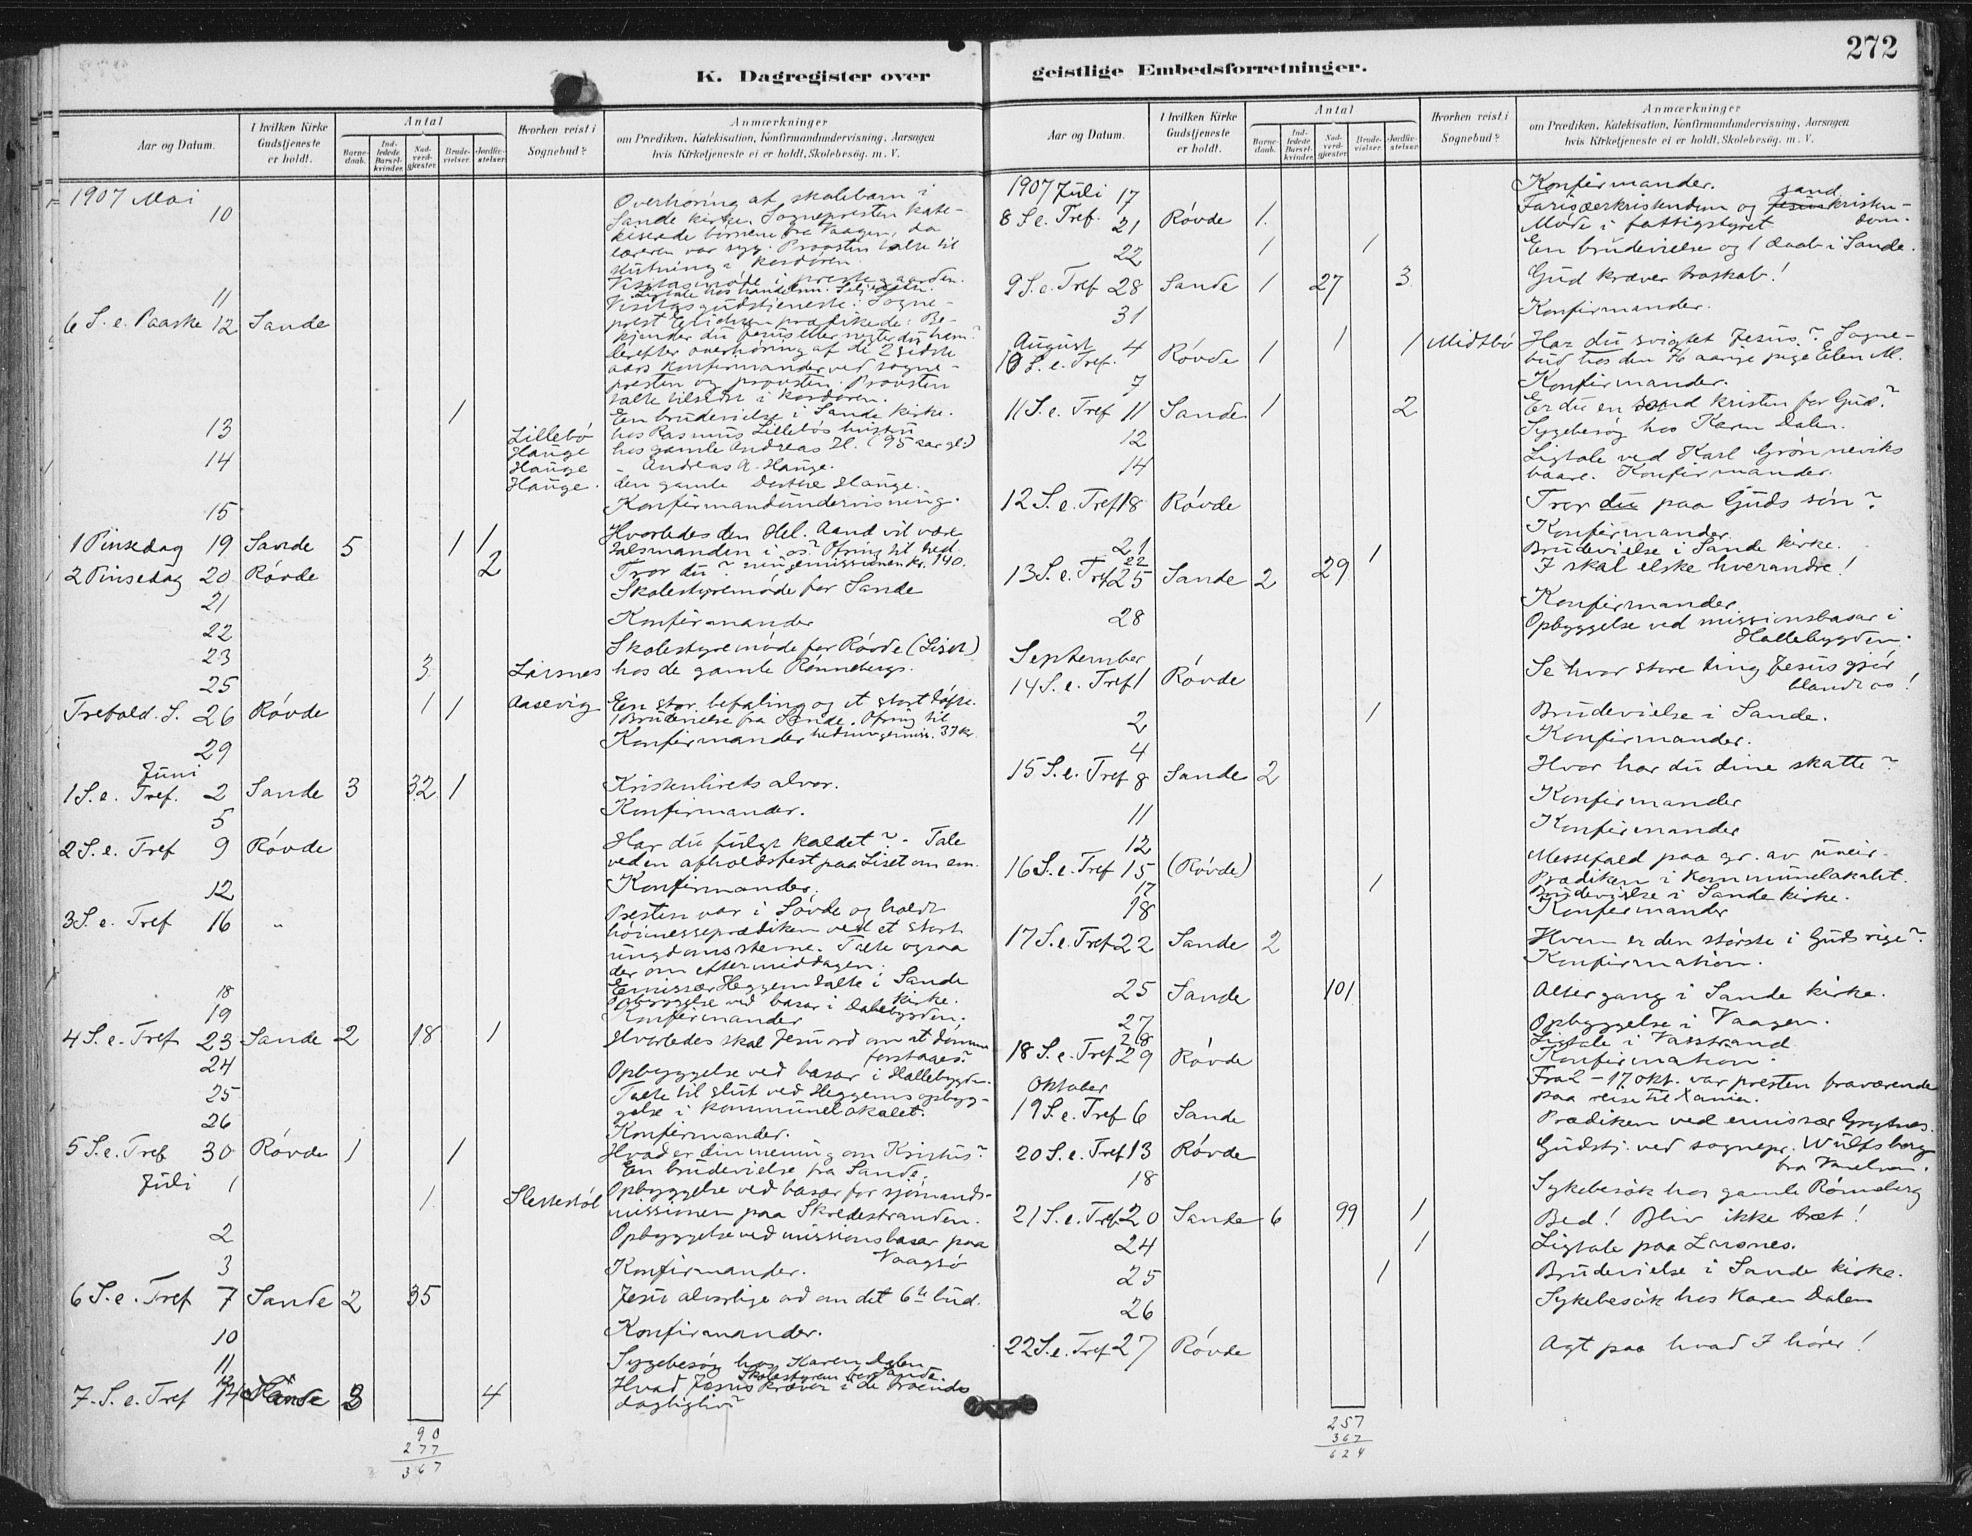 272
K. Dagregister over
geistlige Embedsforretninger.
Aar og Datum.
I hvilken Kirke Gudstjeneste er holdt.
Antal
Barne-daab.
Ind-ledede Barsel-kvinder.
Nad-verd-gjæster.
Brude-vielser.
Jordfæ-stelser.
Hvorhen reist i Sognebud?
Anmærkninger
om Prædiken, Katekisation, Konfirmandundervisning, Aarsagen
hvis Kirketjeneste ei er holdt, Skolebesøg. m. V.
1907 Mai
10 Overhøring af skolebarn i
Sande kirke. Sognepresten kate-
kiserede børnene fra Vaagen, da
læreren var syg. Provsten talte til
slutning i kordøren.
Visitasmøde i prestegaarden.
11
6 S. e. Paaske 12 Sande Visitasgudstjeneste: Sogne-
prest prædikede: Be-
kjender du Jesus eller negter du ham?
derefter overhøring af de 2 sidste
aars konfirmander ved sogne-
presten og provsten. Provsten
talte tilsidst i kordøren.
1 En brudevielse i Sande kirke.
13 Lillebø hos Rasmus Lillebøs hustru
14 Hauge hos gamle Andreas H. (95 aar gl)
Hauge Andreas A. Hauge.
Hauge. den gamle Dorthe Hauge.
15 Konfirmandundervisning.
1 Pinsedag 19 Sande 5 1 1 Hvorledes den Hel. Aand vil være
talsmanden i os? Ofring til hed.
2 Pinsedag 20 Røvde 2 Tror du? ningemissionen kr. 140.
21 Skolestyremøde for Sande
22 Konfirmander
23 Skolestyremøde for Røvde (Liset)
25 3 Larsnes hos de gamle Rønnebergs.
Trefold. S. 26 Røvde 1 1 Aasevig En stor befaling og et stort løfte.
1 Brudevielse fra Sande. Ofring til
29 Konfirmander hedningemis. 37 kr.
Juni
1 S. e. Tref. 2 Sande 3 32 1 Kristenlivets alvor.
5 Konfirmander.
2 S. e. Tref 9 Røvde Har du fulgt kaldet? - Tale
ved en afholdsfest paa Liset om em.
12 Konfirmander.
3 S. e. Tref 16 " Presten var i Søvde og holdt
høimesseprædiken ved et stort
ungdomsstevne. Talte ogsaa
der om eftermiddagen.
Emissær Heggem talte i Sande
kirke.
18 Opbyggelse ved basar i Dalebygden.
19 Konfirmander
4 S. e. Tref 23 Sande 2 18 1 Hvorledes skal Jesu ord om at dømme
forstaaes?
24 Opbyggelse ved basar i Hallebygden.
25 Talte til slut ved Heggems opbyg-
gelse i kommunelokalet.
26 Konfirmander.
5 S. e. Tref 30 Røvde 1 1 Hvad er din mening om Kristus?
En brudevielse fra Sande.
Juli 1 1 Slettestøl Opbyggelse ved basar for sjømands-
missionen paa Skredestranden.
2 Opbyggelse ved missionsbasar paa
Vaagsø
3 Konfirmander.
6 S. e. Tref 7 Sande 2 35 Jesu alvorlige ord om det 6te bud.
10 Konfirmander.
11 Sygebesøg hos Karen Dalen
12 Skolestyrem. ved Sande.
7. S. e. Tref 14 Sande 3 4 Hvad Jesus kræver i de troendes
dagligliv?
90
277
367
Aar og Datum.
I hvilken Kirke Gudstjeneste er holdt.
Antal
Barne-daab.
Ind-ledede Barsel-kvinder.
Nad-verd-gjæster.
Brude-vielser.
Jordfæ-stelser.
Hvorhen reist i Sognebud?
Anmærkninger
om Prædiken, Katekisation, Konfirmandundervisning, Aarsagen
hvis Kirketjeneste ei er holdt, Skolebesøg. m. V.
1907 Juli 17 Konfirmander.
8 S. e. Tref. 21 Røvde 1. Farisæerkristendom og sand kristen-
dom.
Møde i fattigstyret
22 1 1 En brudevielse og 1 daab i Sande.
9 S. e. Tref 28 Sande 1 27 3 Gud kræver troskab!
31 Konfirmander.
August
10 S. e. Tref. 4 Røvde 1 1 1 Midtbø Har du svigtet Jesus? Sogne-
bud hos den 76 aarige pige Elen M.
7 Konfirmander.
11 S. e. Tref 11 Sande 1 2 Er du en sand kristen for Gud?
12 Sygebesøg hos Karen Dalen.
14 Ligtale ved Karl Grønneviks
baare. Konfirmander.
12 S. e. Tref 18 Røvde Tror du paa Guds søn?
21 Konfirmander.
22 1 Brudevielse i Sande kirke.
13 S. e. Tref 25 Sande 2 29 I skal elske hverandre!
28 Konfirmander.
Opbyggelse ved missionsbasar i
Hallebygden.
September
14 S. e. Tref 1 Røvde Se hvor store ting Jesus gjør
blandt os!
2 1 Brudevielse i Sande.
4 Konfirmander.
15 S. e. Tref 8 Sande 2 Hvor har du dine skatte?
11 Konfirmander
12 Konfirmander
16 S. e. Tref 15 (Røvde) Messefald paa gr. av uveir.
Prædiken i kommunelokalet.
17 1 Brudevielse i Sande kirke.
18 Konfirmander
17 S. e. Tref 22 Sande 2 Hvem er den største i Guds rige?
Konfirmation.
25 Sande 101 Altergang i Sande kirke.
27 Opbyggelse i Vaagen.
28 Ligtale i Vasstrand
18 S. e. Tref 29 Røvde Konfirmation.
Oktober Fra 2 - 17 okt. var presten fraværende
paa reise til Xania.
19 S. e. Tref 6 Sande Prædiken ved emissær Grytnes.
20 S. e. Tref 13 Røvde Gudstj. ved sognepr. Wulfsberg
18 Sykebesøk hos gamle Rønneberg
21 S. e. Tref 20 Sande 6 99 1 Bed! Bliv ikke træt!
24 1 Ligtale paa Larsnes.
25 1 Brudevielse i Sande kirke.
26 Sykebesøk hos Karen Dalen
22 S. e. Tref 27 Røvde Agt paa hvad I hører!
257
367
624